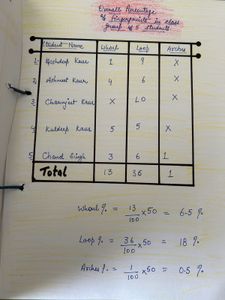 Overall Percentage
of fingerprints in class
group of 5 students.
Student Name Whorl Loop Arches
1- Arshdeep Kaur 1 9 X
2- Ashmeet Kaur 4 6 X
3- Charanjeet Kaur X 10 X
4- Kuldeep Kaur 5 5 X
5 Chand Singh 3 6 1
Total 13 36 1
Whorl % = 13/100 x 50 = 6.5 %
Loop % = 36/100 x 50 = 18 %
Arches % = 1/100 x 50 = 0.5 %